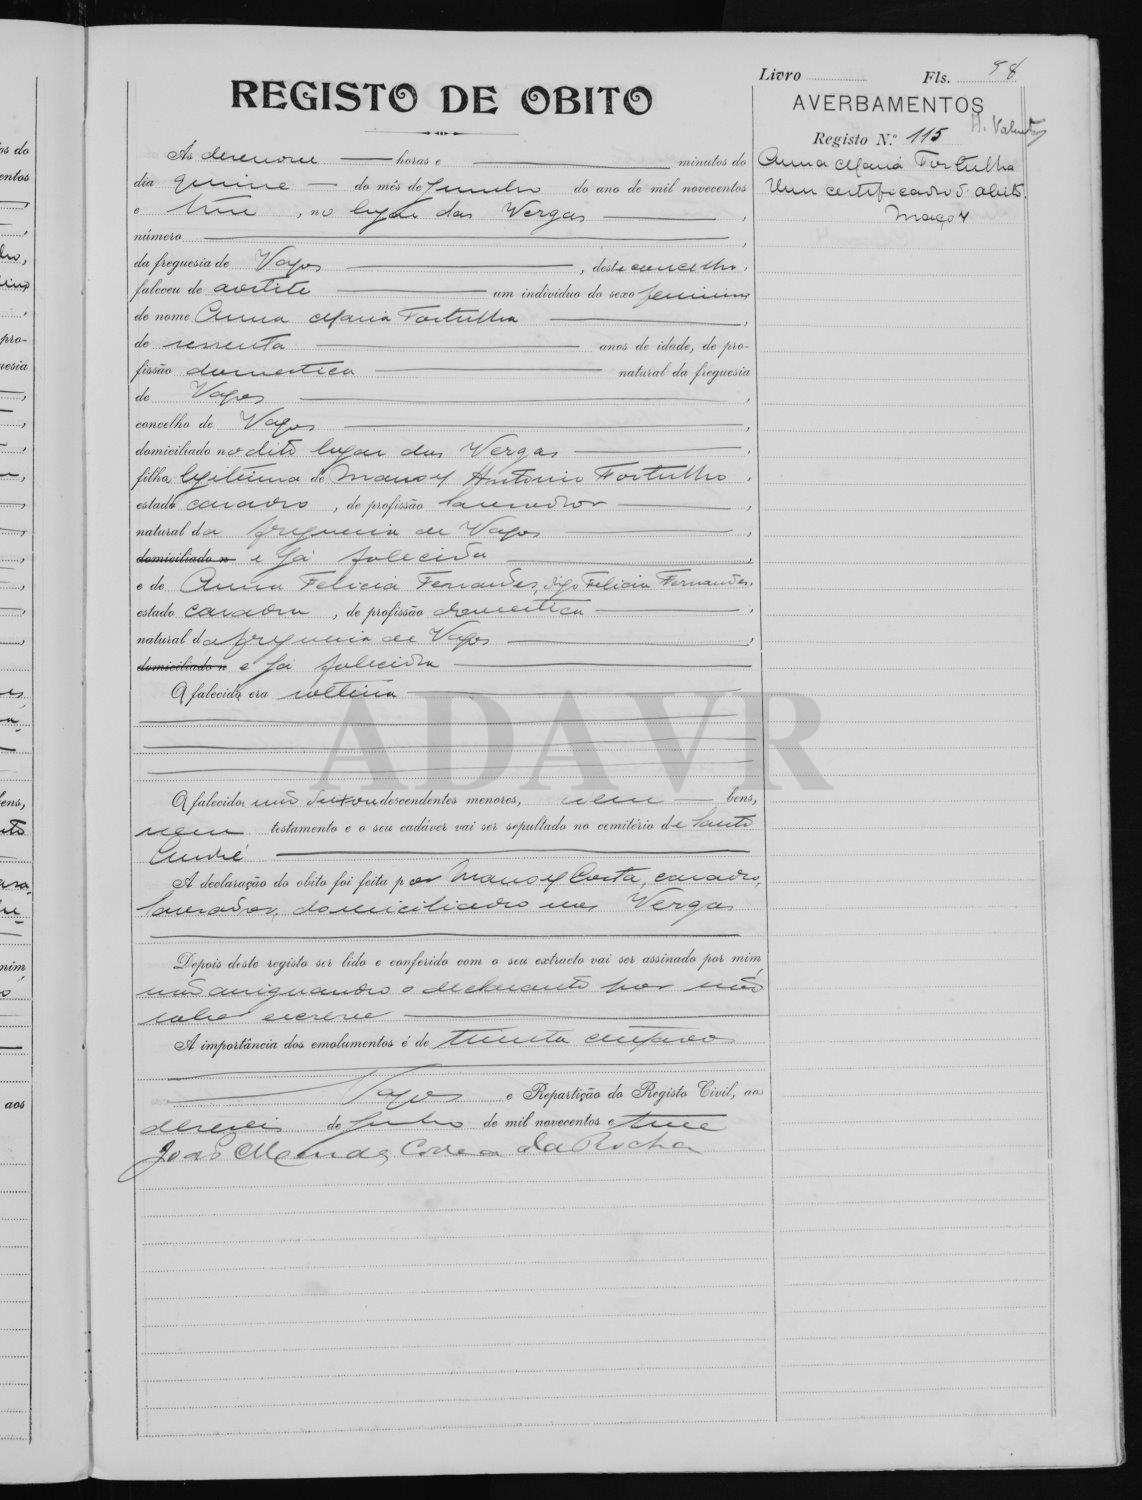 Livro Fls. 58
REGISTO DE OBITO
AVERBAMENTOS
Registo N.º 115
Anna Maria Fortulha
Um certificado d'obito.
Maço 4
As desenove horas e minutos do
dia quinze do mês de Junho do ano de mil novecentos
e treze, no lugar das Vergas,
número,
da freguesia de Vagos, deste concelho,
faleceu de aortite um individuo do sexo feminino
de nome Anna Maria Fortulha,
de sessenta anos de idade, de pro-
fissão domestica natural da freguesia
de Vagos,
concelho de Vagos,
domiciliado no dito lugar das Vergas,
filha legitima de Manoel Antonio Fortulho,
estado casado, de profissão lavrador,
natural da freguesia de Vagos,
domiciliado n e já falecido,
e de Anna Felicia Fernandes, digo Felicia Fernandes,
estado casada, de profissão domestica,
natural da freguesia de Vagos,
domiciliado n e já falecida
A falecida era solteira
ADAVR
A falecida não deixou descendentes menores, nem bens,
nem testamento e o seu cadáver vai ser sepultado no cemitério de Santo
André
A declaração do obito foi feita por Manoel Costa, casado,
lavrador, domiciliado nas Vergas
Depois deste registo ser lido e conferido com o seu extracto vai ser assinado por mim,
não assignando o declarante por não
saber escrever
A importância dos emolumentos é de trinta centavos
Vagos e Repartição do Registo Civil, aos
deseseis de Junho de mil novecentos e treze
João Mendes Correa da Rocha